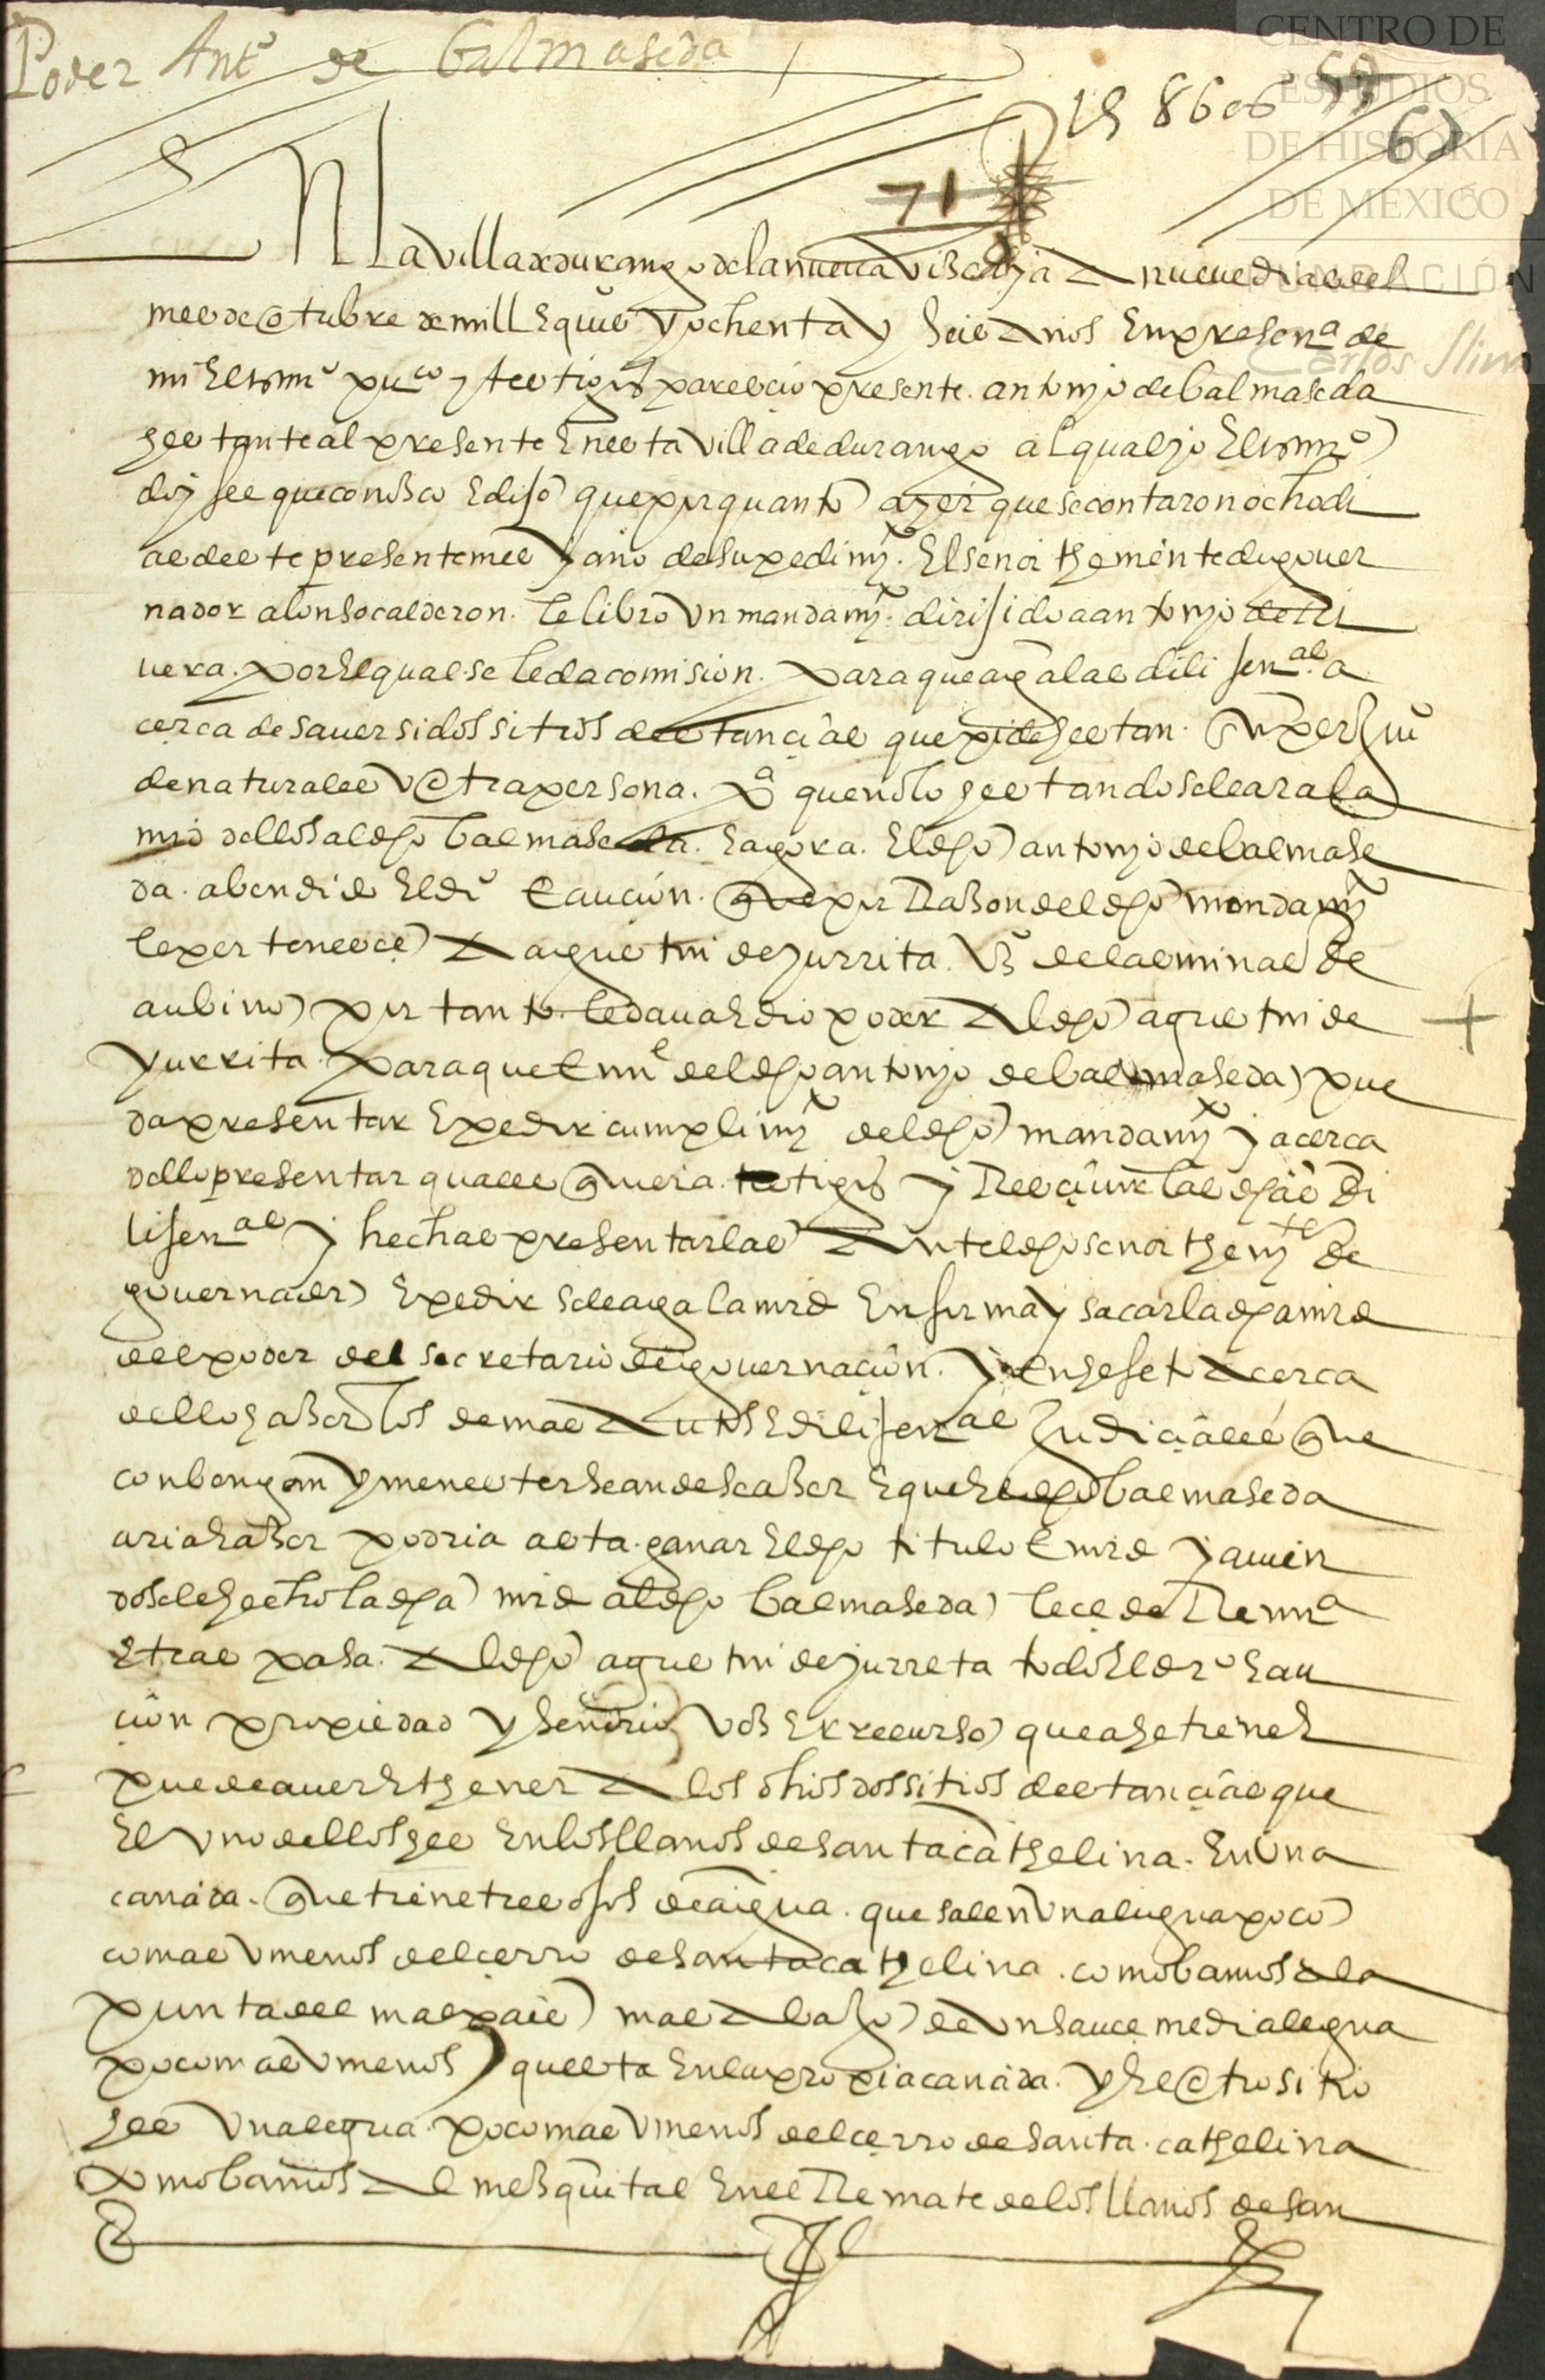 Poder Antº de balmaseda
1586
59
67
71
CENTRO DE
ESTUDIOS
DE HISTORIA
DE MEXICO
FUNDACIÓN
Carlos Slim
En la villa de durango de la nueva viscaya a nueve dias del
mes de otubre de mill e quiºs y ochenta y seis años en presenª de
mi el essnº puco y testigos parescio presente antonyo de balmaseda
estante al presente en esta villa de durango al qual yo el essnº
doy fee que conosco e dijo que por quanto ayer que se contaron ocho di
as deste presente mes y año de su pedimyº el señor theniente de gouer
nador alonso calderon le libro un mandamyº dirijido a antonyo de rri
uera por el qual se le da comision para que aga las dilijenas a
cerca de sauer si dos sitios de estancias que pide estan sin perjuiº
de naturales u otra persona pª que no lo estando se le ara la
mrd dellos al dho balmaseda e agora el dho antonyo de balmase
da a bendido el drº e aucion que por rrason del dho mandamyº
le pertenesce a agustin de zurrita vº de las minas de
aubino por tanto le daua e dio poder al dho agustin de
zurrita para que en nue del dho antonyo de balmaseda pue
da presentar e pedir cumplimyº del dho mandamyº y acerca
dello presentar quales quiera testigos y rrecauir las dhas di
lijenas y hechas presentarlas ante el dho señor thenyte de
gouernador e pedir se le aga la mrd en forma y sacar la dha mrd
del poder del secretario de gouernacion y en hefeto acerca
dello haser los demas autos e dilijenas judiciales que
conbengan y menester sean de se haser e que el dho balmaseda
aria e haser podria asta ganar el dho titulo e mrd y auien
dosele hecho la dha mrd al dho balmaseda le cede rrenunª
e traspasa al dho agustin de zurreta todo el drº e au
cion propiedad y señorio vos e rrecurso que a he tiene e
puede auer e thener a los dhos dos sitios de estancias que
el uno dellos es en los llanos de santa cathelina en una
cañada que tiene tres ojos de agua que salen una legua poco
o mas o menos del cerro de santa cathelina como bamos a la
punta del mal pais mas abajo de un sauce media legua
poco mas o menos que esta en la propia cañada y el otro sitio
es una legua poco mas o menos del cerro de santa cathelina
como bamos al mesquital en el rremate de los llanos de san